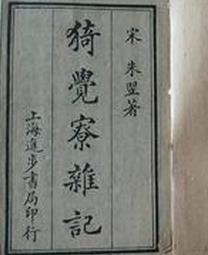 宋 朱翌著
猗覺寮雜記
上海進步書局印行